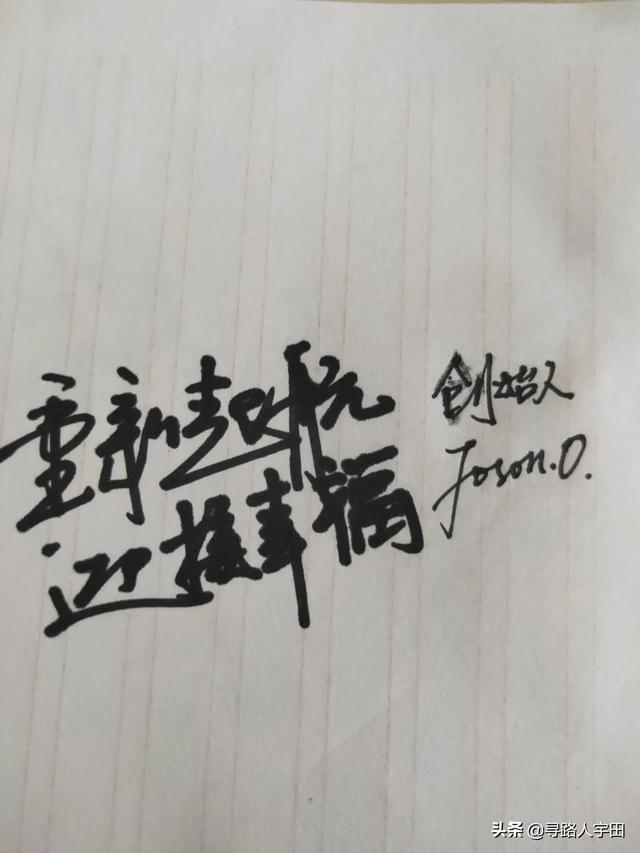 重新起航
迎接幸福
创始人
Joson.O.
头条 @寻路人宇田